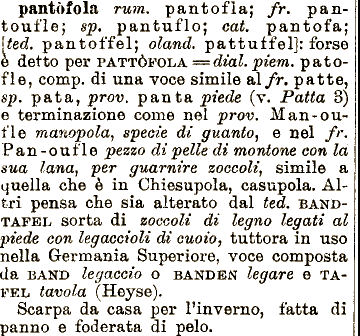 pantòfola rum. pantofla; fr. pan-
toufle; sp. pantuflo; cat. pantofa;
[ted. pantoffel; oland. pattuffel]: forse
è detto per PATTÒFOLA = dial. piem. pato-
fle, comp. di una voce simile al fr. patte,
sp. pata, prov. panta piede (v. Patta 3)
e terminazione come nel prov. Man-ou-
fle manopola, specie di guanto, e nel fr.
Pan-oufle pezzo di pelle di montone con la
sua lana, per guarnire zoccoli, simile a
quella che è in Chiesupola, casupola. Al-
tri pensa che sia alterato dal ted. BAND-
TAFEL sorta di zoccoli di legno legati al
piede con legaccioli di cuoio, tuttora in uso
nella Germania Superiore, voce composta
da BAND legaccio o BANDEN legare e TA-
FEL tavola (Heyse).
Scarpa da casa per l'inverno, fatta di
panno e foderata di pelo.